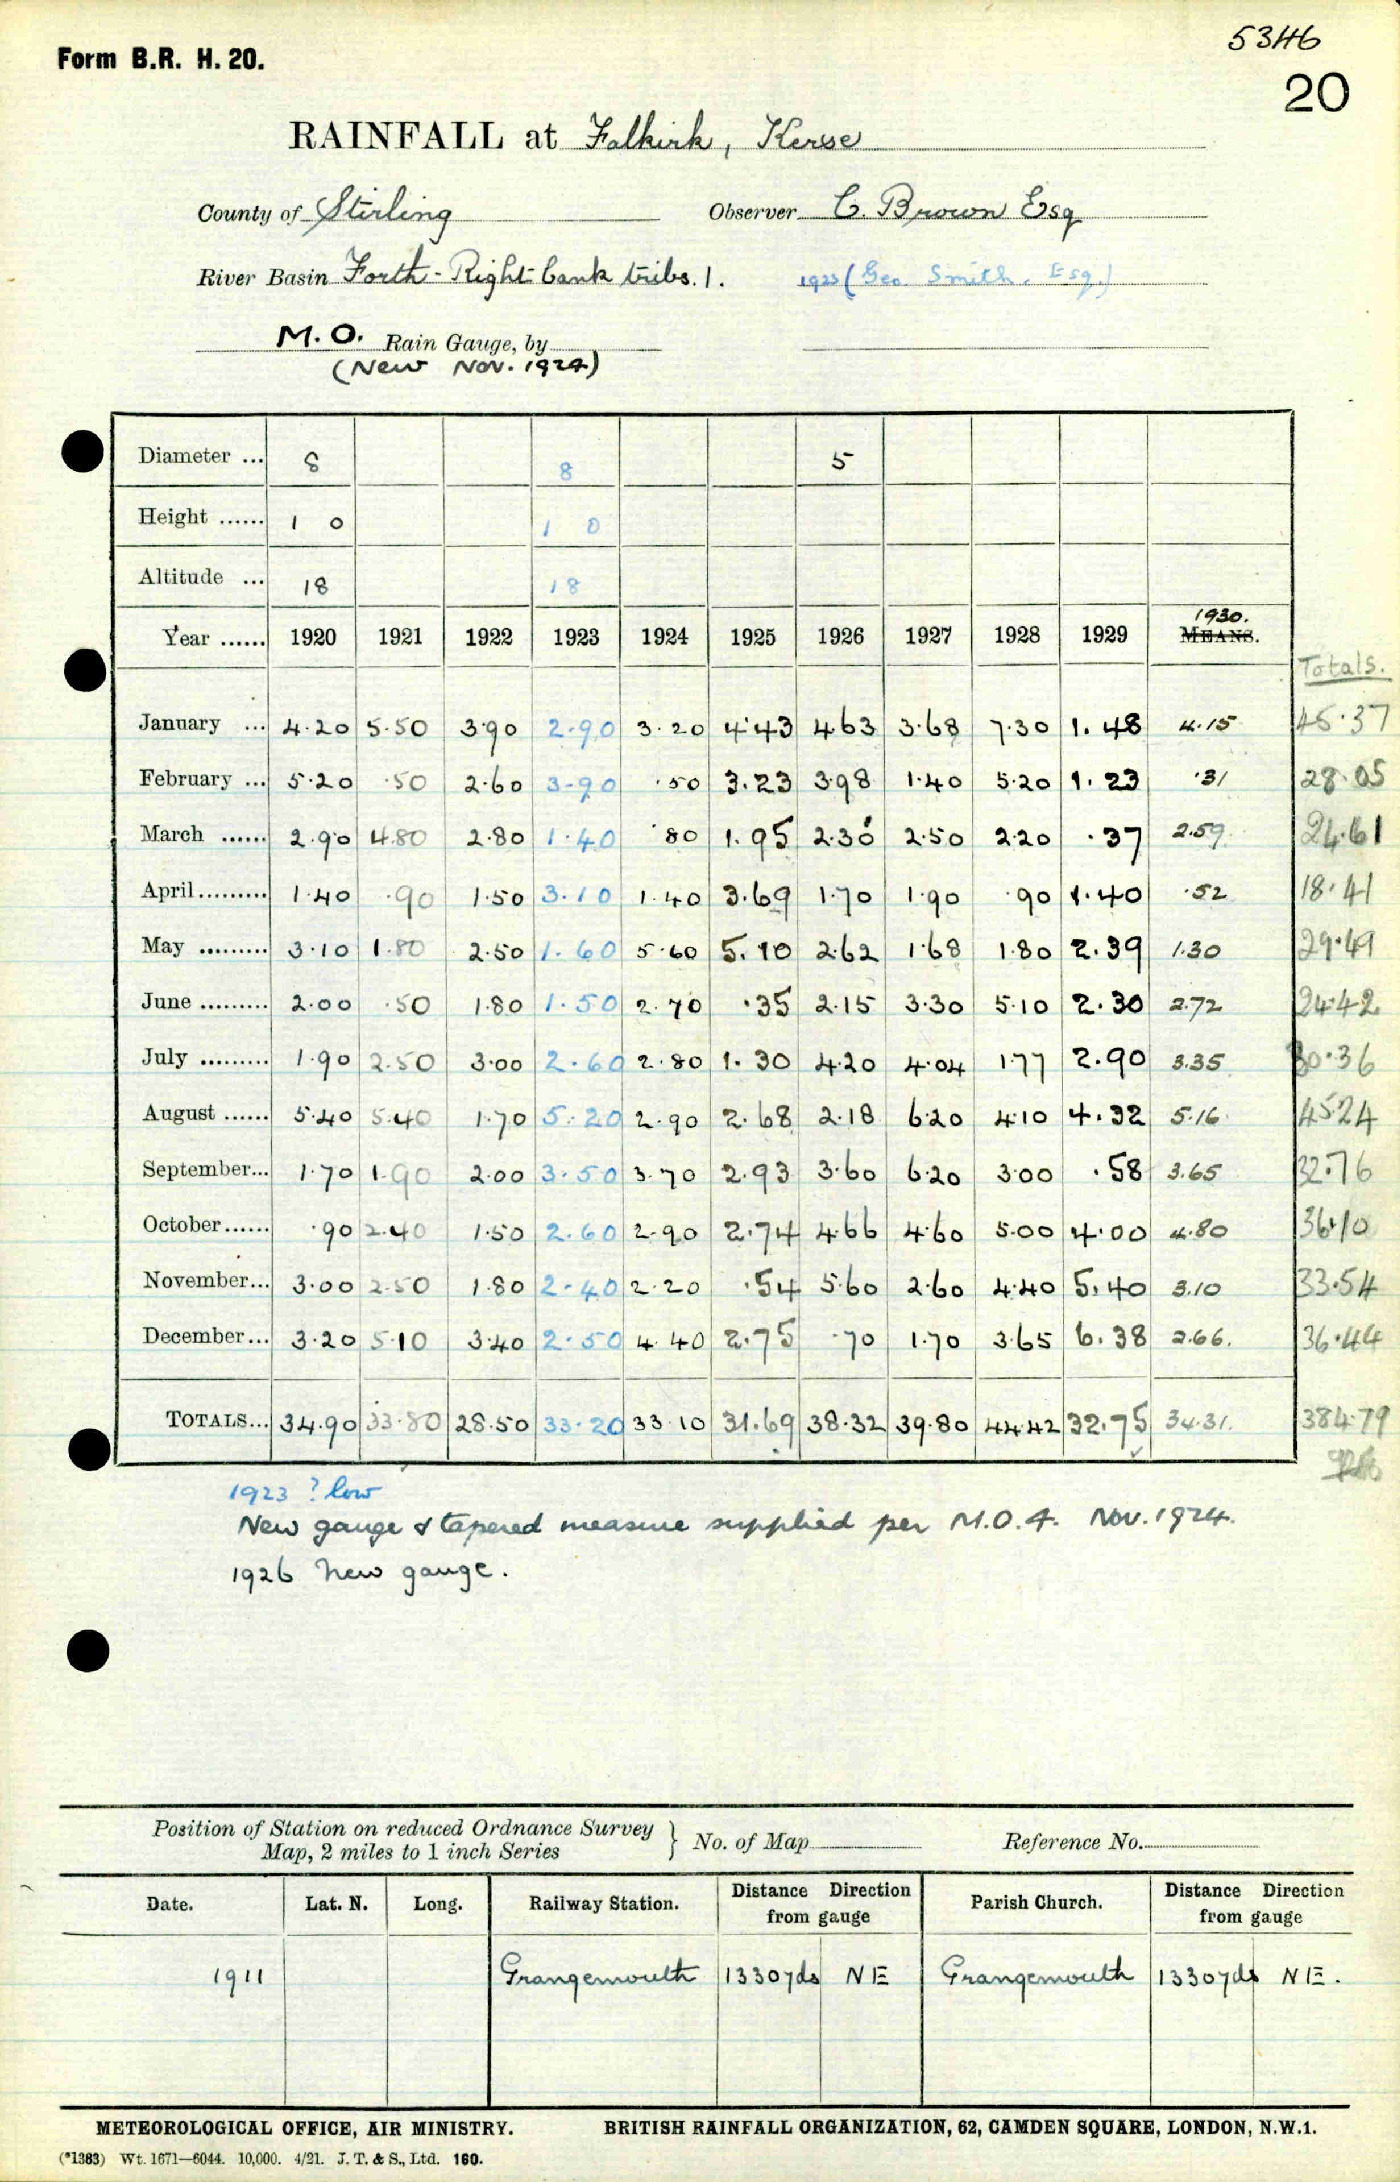 5346
Form B.R. H. 20.
20
RAINFALL at Falkirk, Kerse
County of Stirling Observer C. Brown Esq
River Basin Forth - Right bank tribs. 1. 1923 (Geo. Smith, Esq.)
M.O. Rain Gauge, by
(New Nov. 1924)
Diameter ... 8 8 5
Height ...... 1 0 1 0
Altitude ... 18 18
1930.
Year ...... 1920 1921 1922 1923 1924 1925 1926 1927 1928 1929 MEANS.
Totals.
January ... 4.20 5.50 3.90 2.90 3.20 4.43 4.63 3.68 7.30 1.48 4.15 45.37
February ... 5.20 .50 2.60 3.90 .50 3.23 3.98 1.40 5.20 1.23 .31 28.05
March ...... 2.90 4.80 2.80 1.40 .80 1.95 2.30 2.50 2.20 .37 2.59 24.61
April ......... 1.40 .90 1.50 3.10 1.40 3.69 1.70 1.90 .90 1.40 .52 18.41
May ......... 3.10 1.80 2.50 1.60 5.60 5.10 2.62 1.68 1.80 2.39 1.30 29.49
June ......... 2.00 .50 1.80 1.50 2.70 .35 2.15 3.30 5.10 2.30 2.72 24.42
July ......... 1.90 2.50 3.00 2.60 2.80 1.30 4.20 4.04 1.77 2.90 3.35 30.36
August ...... 5.40 5.40 1.70 5.20 2.90 2.68 2.18 6.20 4.10 4.32 5.16 45.24
September... 1.70 1.90 2.00 3.50 3.70 2.93 3.60 6.20 3.00 .58 3.65 32.76
October...... .90 2.40 1.50 2.60 2.90 2.74 4.66 4.60 5.00 4.00 4.80 36.10
November... 3.00 2.50 1.80 2.40 2.20 .54 5.60 2.60 4.40 5.40 3.10 33.54
December... 3.20 5.10 3.40 2.50 4.40 2.75 .70 1.70 3.65 6.38 2.66. 36.44
TOTALS... 34.90 33.80 28.50 33.20 33.10 31.69 38.32 39.80 44.42 32.75 34.31. 384.79
1923 ? low
New gauge & tapered measure supplied per M.O.4. Nov. 1924.
1926 New gauge.
Position of Station on reduced Ordnance Survey
Map, 2 miles to 1 inch Series } No. of Map Reference No.
Date. Lat. N. Long. Railway Station. Distance Direction from gauge Parish Church. Distance Direction from gauge
1911 Grangemouth 1330yds NE Grangemouth 1330yds NE.
METEOROLOGICAL OFFICE, AIR MINISTRY. BRITISH RAINFALL ORGANIZATION, 62, CAMDEN SQUARE, LONDON, N.W.1.
(*1383) Wt. 1671—6044. 10,000. 4/21. J. T. & S., Ltd. 160.